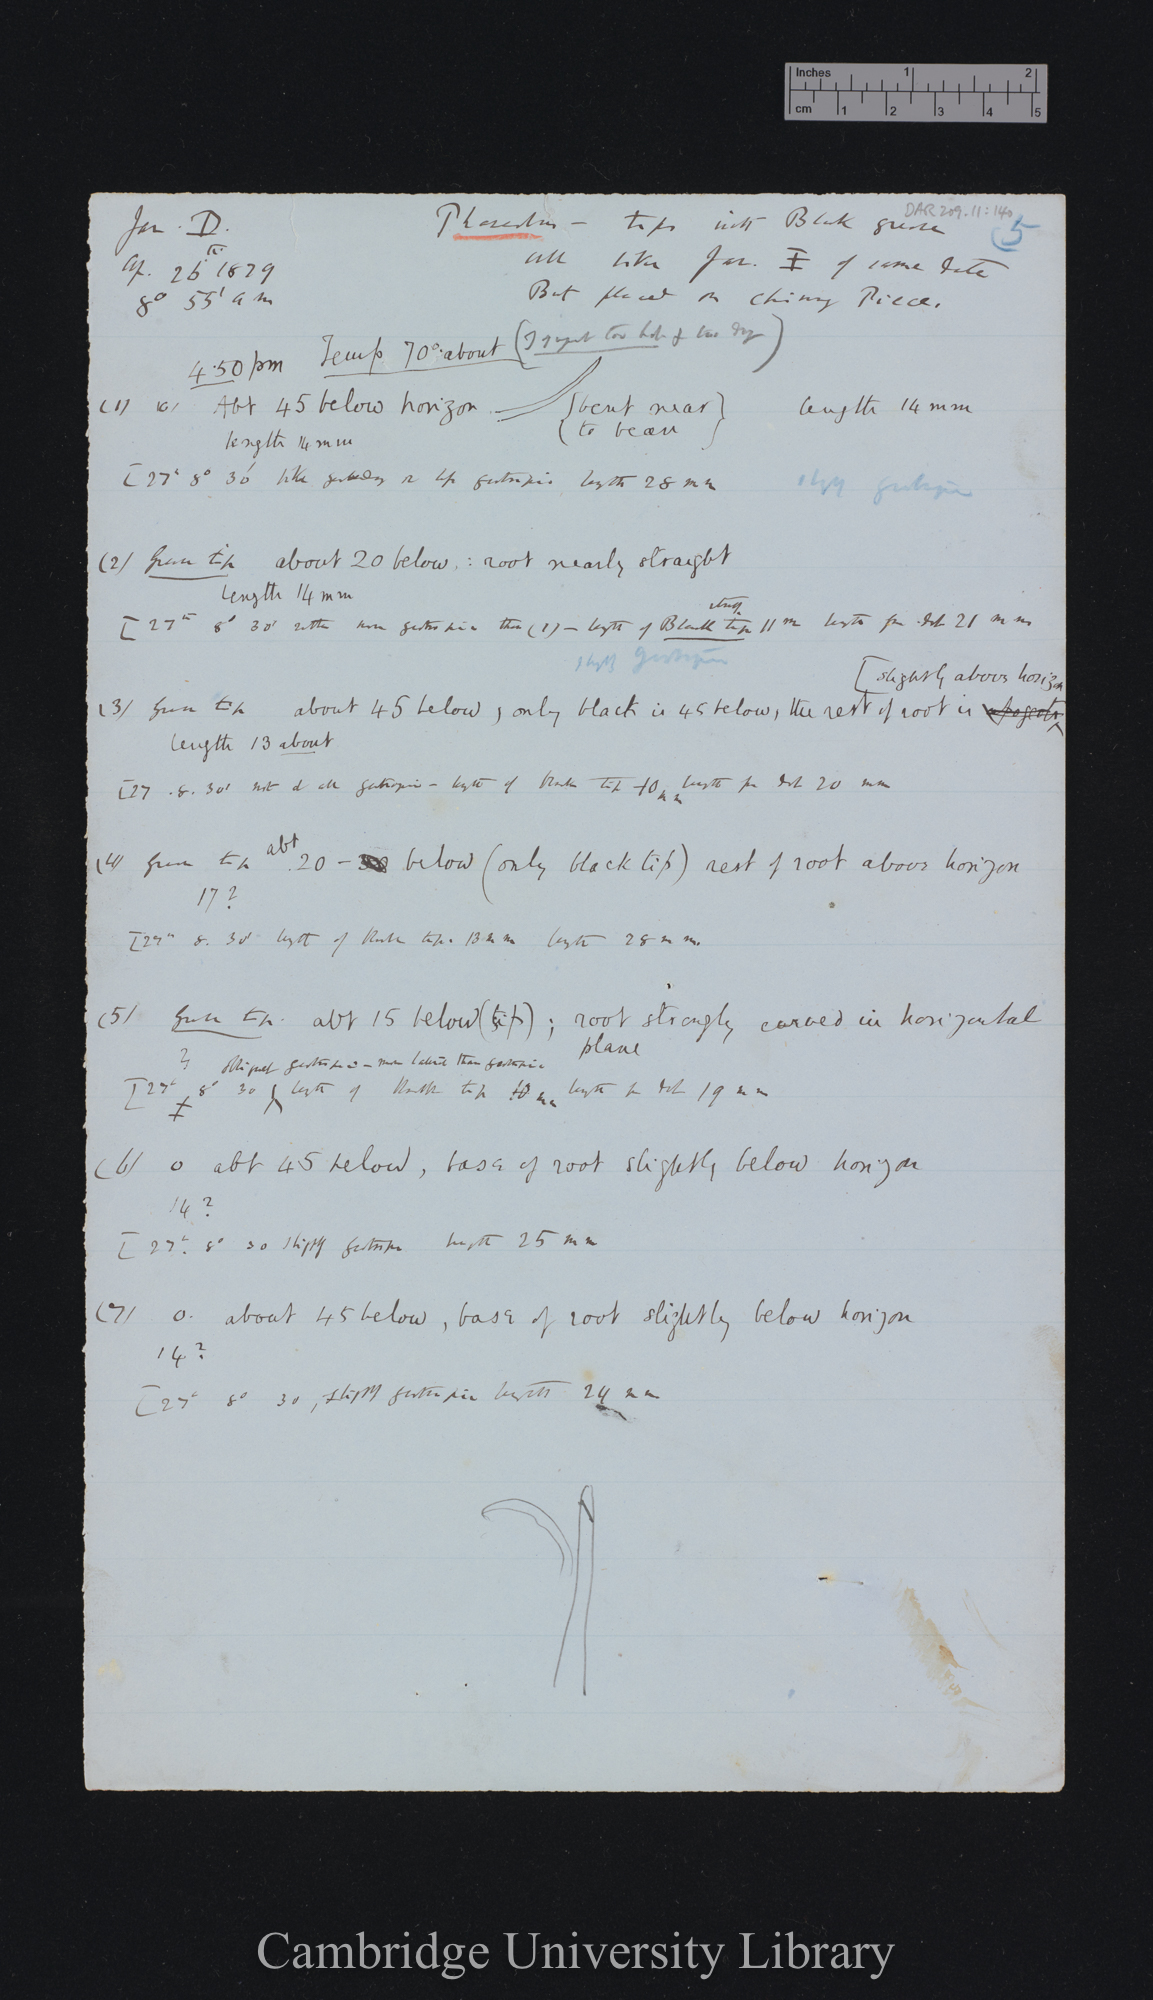 Inches 1 2
cm 1 2 3 4 5
DAR 209.11:140
Jar. D.
Phaseolus — tips with Black grease
(5
Ap. 26th 1879
all like Jar. I of same date
8° 55' a m
But placed on Chimney Piece.
4.50 pm Temp 70° about (I suspect too hot & too dry)
(1) (o) Abt 45 below horizon {bent near to bean} length 14 mm
length 14 mm
[27th 8° 30' like geotropic length 28 mm
slightly geotropic
(2) Grease tip about 20 below : root nearly straight
length 14 mm
[27th 8° 30' rather more geotropic than (1) — length of Black tip 11 m length from dot 21 mm
slightly Geotropic
[slightly above horizon
(3) Grease tip about 45 below, only black is 45 below, the rest of root is apogeotr
length 13 about
[27 . 8. 30' not at all geotropic — length of Black tip 10 mm length from dot 20 mm
(4) Grease tip abt 20 – 30 below (only black tip) rest of root above horizon
17?
[27th 8. 30' length of Black tip. 13 mm length 28 mm.
(5) Grease tip. abt 15 below (tip); root strongly curved in horizontal
plane
? oblique geotropic — more lateral than geotropic
[27th 8° 30 length of Black tip 10 mm length from dot 19 mm
(6) o abt 45 below, base of root slightly below horizon
14?
[27th. 8° 30 slightly geotropic length 25 mm
(7) o. about 45 below, base of root slightly below horizon
14?
[27th 8° 30, slightly geotropic length 24 mm
Cambridge University Library